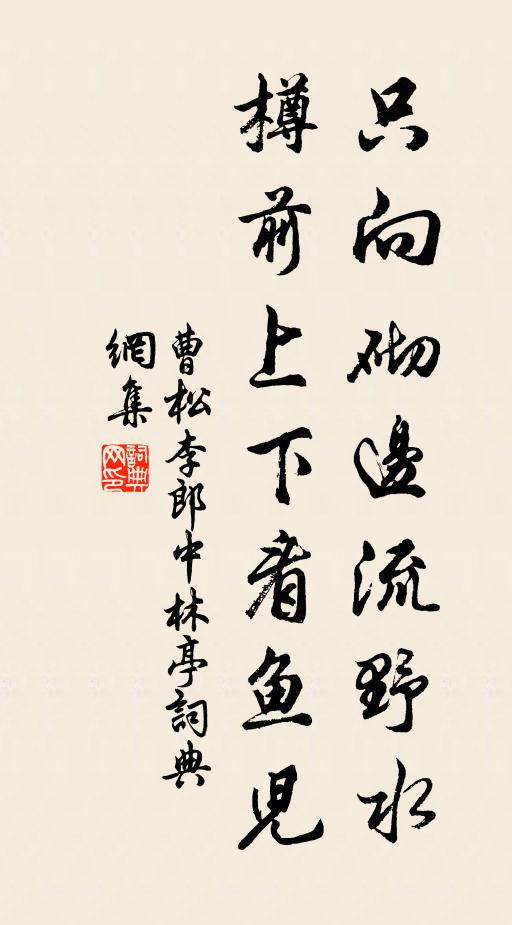 只向砌邊流野水
樽前上下看魚兒
曹松李郎中林亭詞典
網集
詞典網印